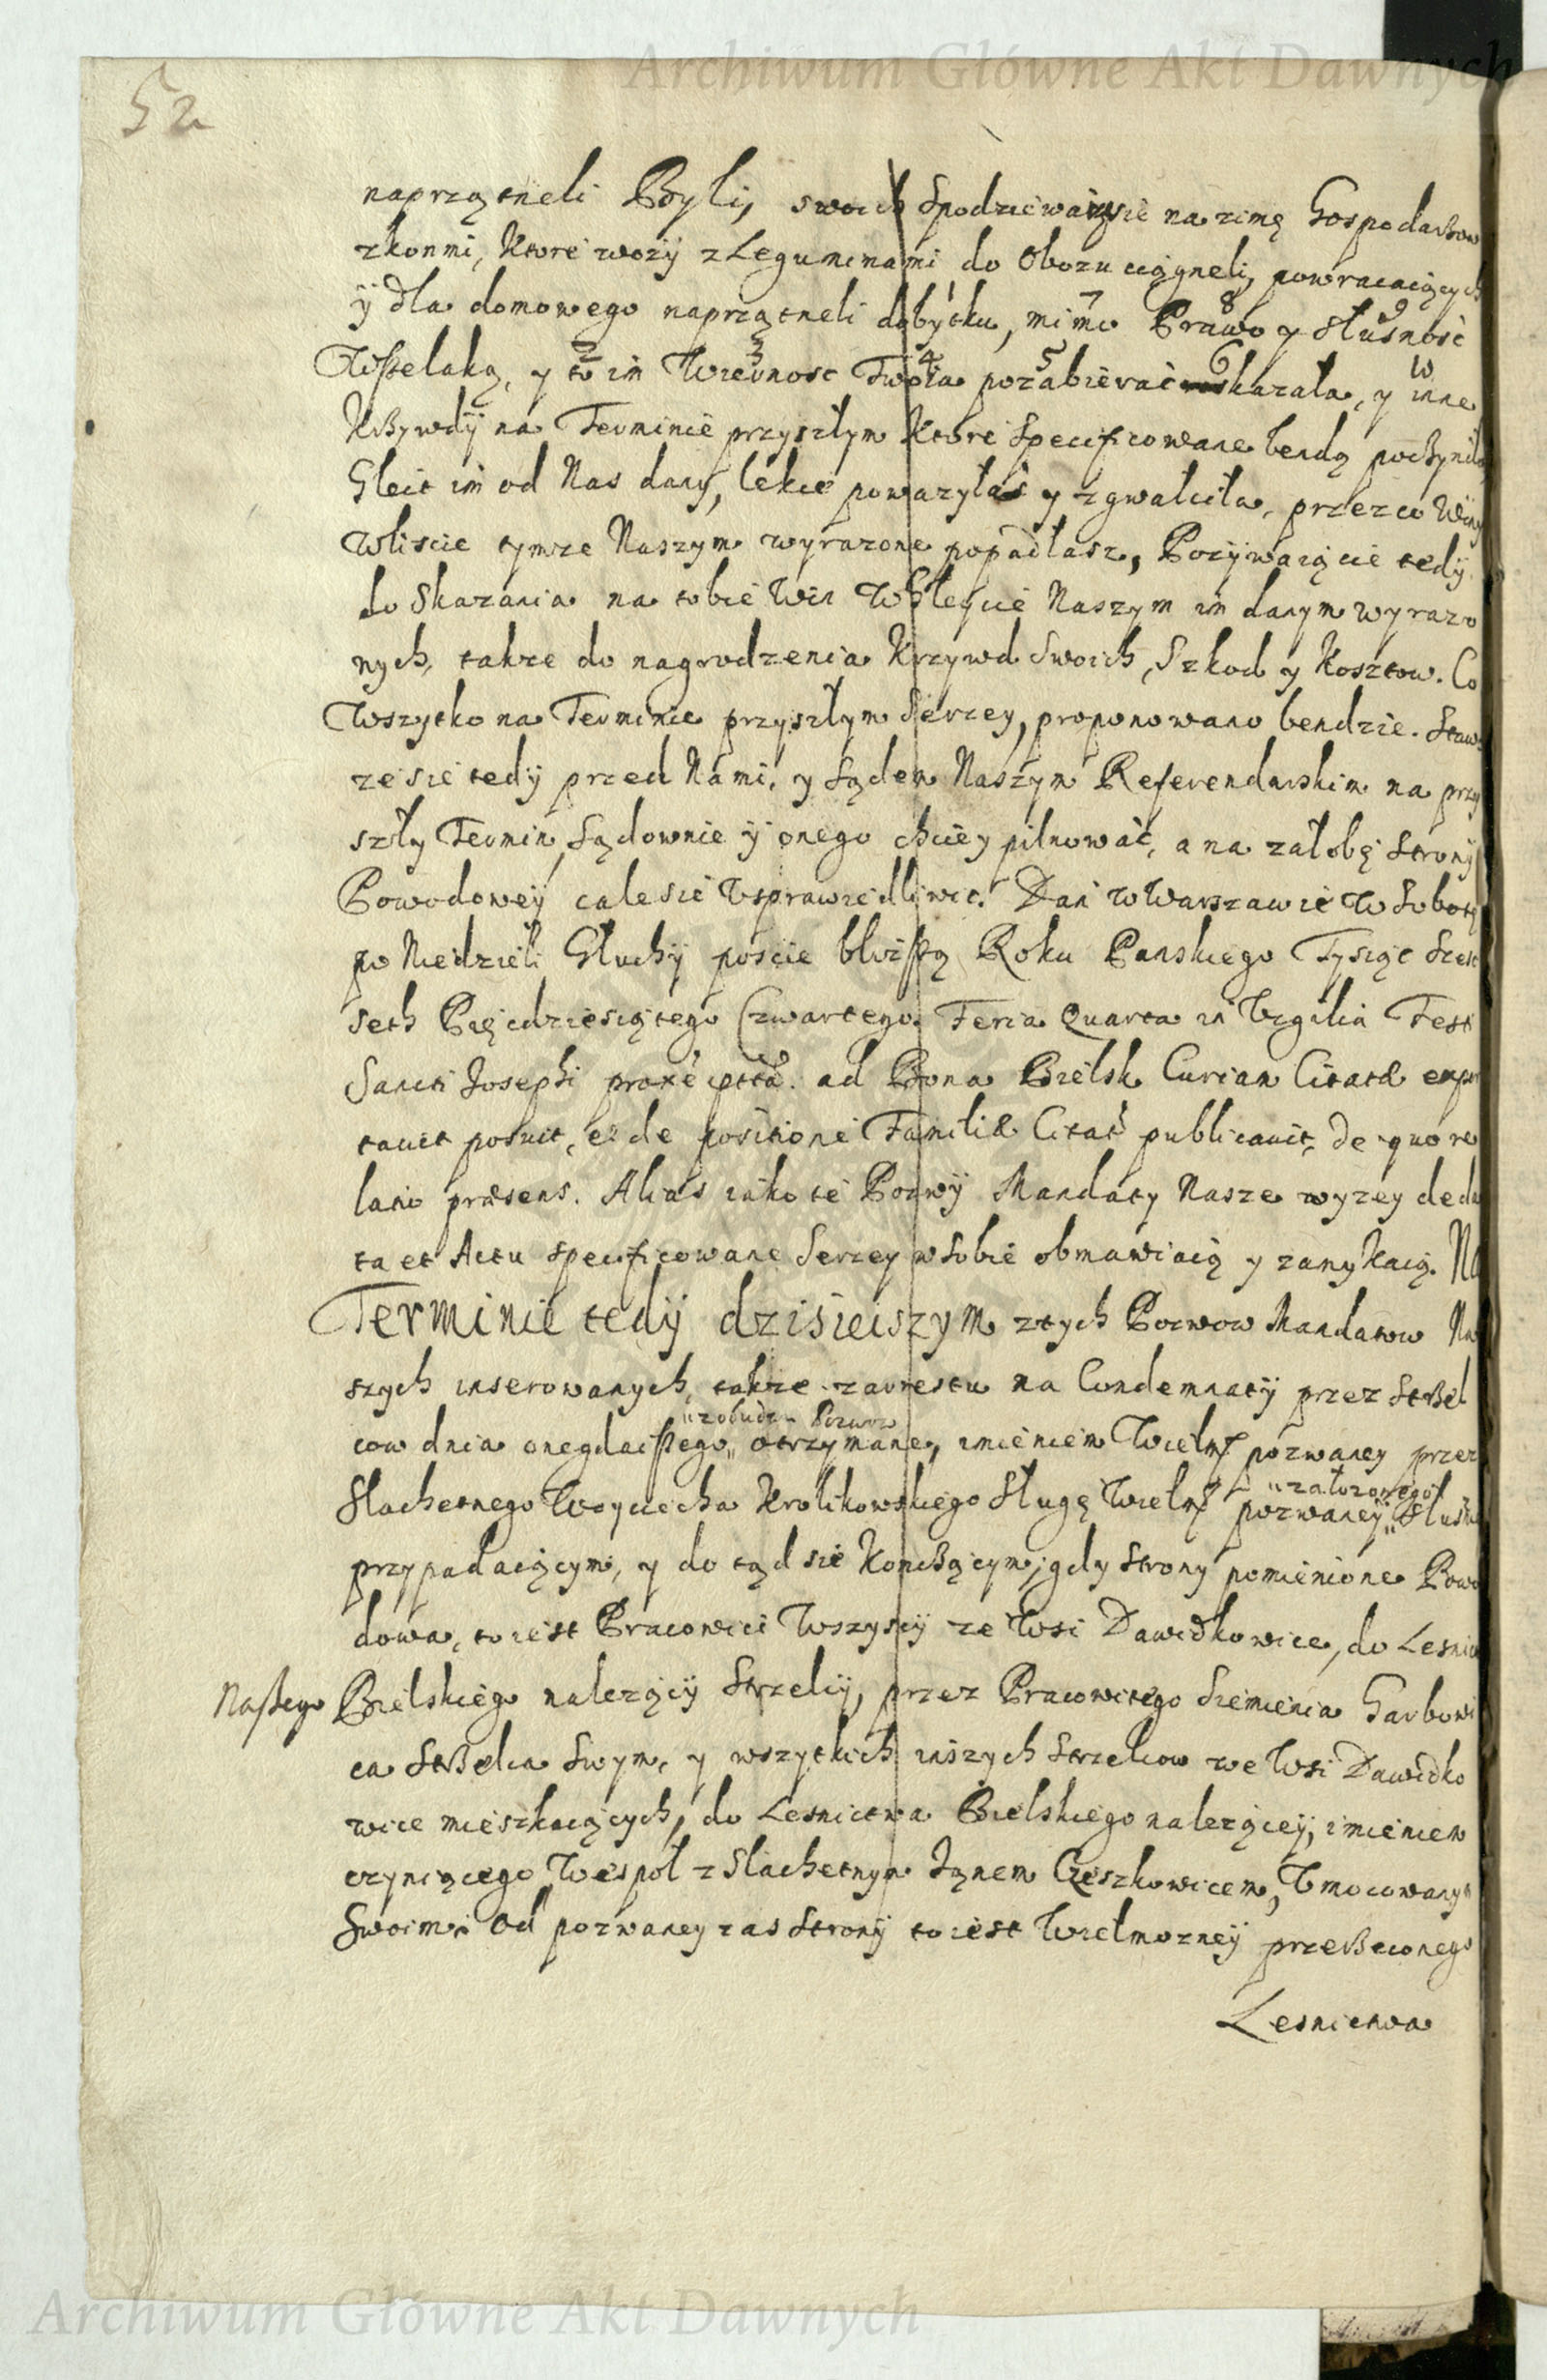 Archiwum Główne Akt Dawnych
52
naprzątneli Byli, swoich spodziewaiąsię na zimę Gospodarzow
zkonmi, Ktore wozy z Leguminami do Obozu ciągneli, powracaiących
ÿ dla domowego naprzątneli dobytku, mimo Prawo y słusnosc
1 7 8 9
Wszelaką, y to im Wiernosc Twoia pozabierać kazała, y inne
2 3 4 5 6 10
Krzywdÿ na Terminie przyszłym Ktore specificowane bendą poczyniła
Gleit im od Nas dany, lekce powazyłas y zgwałciła, przez co Winy
Wliscie tymze Naszym wyrazone popadłasz, Pozÿwaią cie tedÿ
do Skazania na tobie Win W Gleycie Naszym im danym wyrazo
nych, takze do nagrodzenia Krzywd swoich, Szkod y Kosztow. Co
Wszytko na Terminie przyszłym szerzey, proponowano bendzie. Staw
ze sie tedÿ przed Nami, y Sądem Naszym Referendarskim na przy
szły Termin, sądownie ÿ onego chciey pilnowac, a na załobę Stronÿ
Powodoweÿ cale sie Vsprawiedliwic. Dan w Warszawie w Sobotę
po Niedzieli Głuchÿ poscie bliszą Roku Panskiego Tysiąc szesc
seth Pięcdziesiątego Czwartego. Feria Quarta in Vigilia Festi
Sancti Josephi proxe pttã. ad Bona Bielsk Curiam Citatæ expor
tauit posuit, et de positione Familiæ Citat publicauit, de quo re
latio præsens. Alias iako te Pozwÿ Mandaty Nasze wyzey de da
ta et Actu specificowane szerzey w sobie obmawiaią y zamykaią. Na
Terminie tedÿ dzisieiszym ztych Pozwow Mandatow Na
szych inserowanych, takze zarrestu na Condemnatÿ przez Strzel
cow dnia onegdaiszego, otrzymane, imieniem Wielm pozwaney przez
Slachetnego Woyciecha Krolikowskiego sługę Wielm pozwaneÿ
załozonego
przypadaiącym, y do tąd sie Konczącym, gdy strony pomienione Powo
dowa, to iest Pracowici Wszyscÿ ze Wsi Dawidkowice, do Lesnic
Naszego Bielskiego nalezącÿ Strzelcÿ, przez Pracowitego Siemiena Garbowi
ca Strzelca swym, y wszytkich inszych Strzelcow we Wsi Dawidko
wice mieszkaiących, do Lesnictwa Bielskiego nalezącÿ, imieniem
czyniącego Wespoł z Slachetnym Janem Czeszkowicem, Vmocowanym
Swoim. Od pozwaney zas Stronÿ to iest Wielmozneÿ przerzeconego
Lesnictwa
Archiwum Główne Akt Dawnych